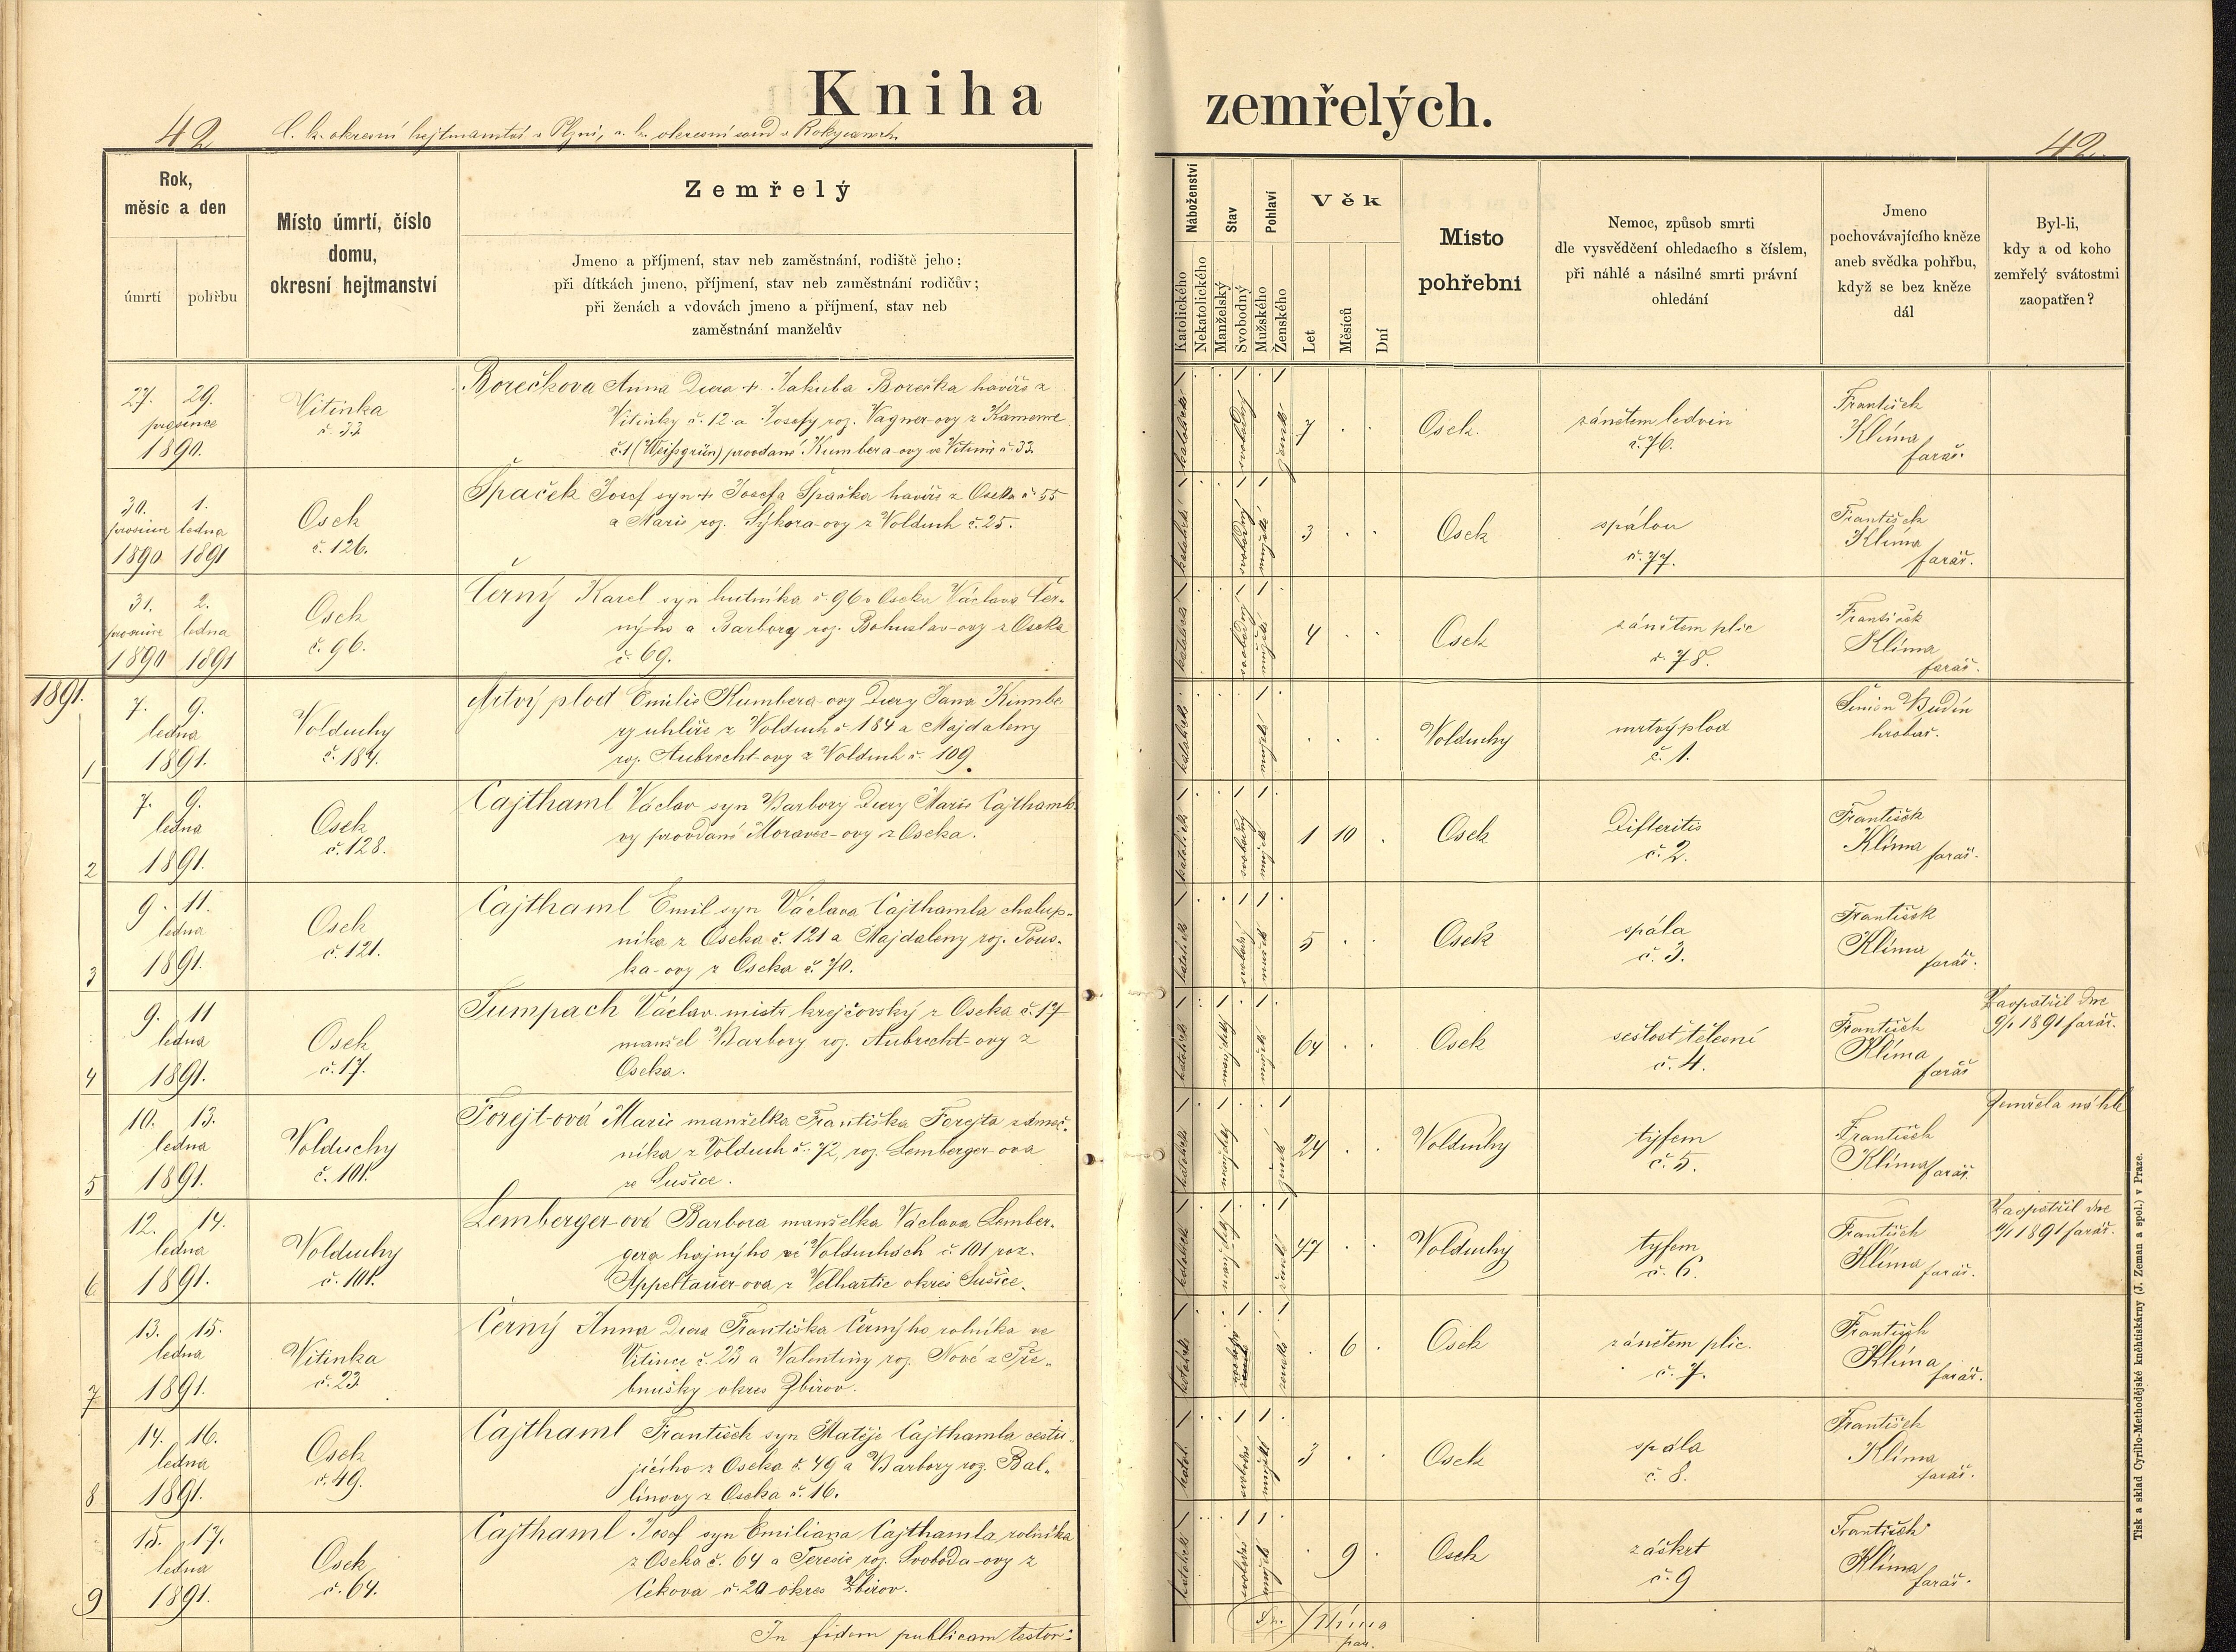 Kniha zemřelých.
42 C. k. okresní hejtmanství v Plzni, c. k. okresní soud v Rokycanech 42
Rok,
měsíc a den
úmrtí
pohřbu
Místo úmrtí, číslo
domu,
okresní hejtmanství
Zemřelý
Jmeno a příjmení, stav neb zaměstnání, rodiště jeho;
při dítkách jmeno, příjmení, stav neb zaměstnání rodičův;
při ženách a vdovách jmeno a příjmení, stav neb
zaměstnání manželův
Náboženství
Katolického
Nekatolického
Stav
Manželský
Svobodný
Pohlaví
Mužského
Ženského
Věk
Let
Měsíců
Dní
Místo
pohřební
Nemoc, způsob smrti
dle vysvědčení ohledacího s číslem,
při náhlé a násilné smrti právní
ohledání
Jmeno
pochovávajícího kněze
aneb svědka pohřbu,
když se bez kněze
dál
Byl-li,
kdy a od koho
zemřelý svátostmi
zaopatřen?
27. 29.
prosince
1890.
Vitinka
č. 33
Borečkova Anna dcera + Jakuba Borečka havíře z
Vitinky č. 12 a Josefy roz. Vagner-ovy z Kamenné
č. 1 (Weißgrün) provdané Kumbera-ovy ve Vitinci č. 33.
7
Osek.
zánětem ledvin
č. 76.
František
Klíma
farář.
30. 1.
prosince ledna
1890 1891
Osek
č. 126.
Špaček Josef syn + Josefa Špačka havíře z Oseka č. 55
a Marie roz. Sýkora-ovy z Volduch č. 25.
3
Osek
spálou
č. 77.
František
Klíma
farář.
31. 2.
prosince ledna
1890 1891
Osek
č. 96.
Černý Karel syn hutníka č. 96 v Oseku Václava Čer-
nýho a Barbory roz. Bohuslav-ovy z Oseka
č. 69.
4
Osek
zánětem plic
č. 78.
František
Klíma
farář.
1891.
1
7. 9.
ledna
1891.
Volduchy
č. 184.
Mrtvý plod Emilie Kumbera-ovy dcery Jana Kumbe-
ry uhlíře z Volduch č 184 a Majdaleny
roz. Aubrecht-ovy z Volduch č. 109.
Volduchy
mrtvý plod
č. 1.
Šimon Budín
hrobař.
2
7. 9.
ledna
1891.
Osek
č. 128.
Cajthaml Václav syn Barbory dcery Marie Cajthamlo-
vy provdané Moravec-ovy z Oseka.
1 10
Osek
Difteritis
č. 2.
František
Klíma farář.
3
9. 11.
ledna
1891.
Osek
č. 121.
Cajthaml Emil syn Václava Cajthamla chalup-
níka z Oseka č. 121 a Majdaleny roz. Pous-
ka-ovy z Oseka č. 70.
5
Osek
spála
č. 3.
František
Klíma
farář.
4
9. 11
ledna
1891.
Osek
č. 17.
Tumpach Václav mistr krejčovský z Oseka č. 17
manžel Barbory roz. Aubrecht-ovy z
Oseka.
64
Osek
sešlost tělesní
č. 4.
František
Klíma
farář
Zaopatřil dne
9/1 1891 farář.
5
10. 13.
ledna
1891.
Volduchy
č. 101.
Forejt-ová Marie manželka Františka Forejta zámeč-
níka z Volduch č. 72, roz. Lemberger-ova
ze Sušice.
24
Volduchy
týfem
č. 5.
František
Klíma farář.
Zemřela náhle
6
12. 14.
ledna
1891.
Volduchy
č. 101.
Lemberger-ová Barbora manželka Václava Lember-
gera hajnýho ve Volduchách č 101 roz.
Appeltauer-ova z Velhartic okres Sušice.
47
Volduchy
tyfem
č. 6.
František
Klíma farář.
Zaopatřil dne
1891 farář.
7
13. 15.
ledna
1891.
Vitinka
č. 23.
Černý Anna dcera Františka Černýho rolníka ve
Vitinci č. 23 a Valentiny roz. Nové z Tře-
bnušky okres Zbirov.
6
Osek
zánětem plic.
č. 7.
František
Klíma
farář.
8
14. 16.
ledna
1891.
Osek
č. 49.
Cajthaml František syn Matěje Cajthamla cestu-
jícího z Oseka č. 49 a Barbory roz. Bal-
línovy z Oseka č. 16.
3
Osek
spála
č. 8.
František
Klíma
farář.
9
15. 17.
ledna
1891.
Osek
č. 64.
Cajthaml Josef syn Emiliana Cajthamla rolníka
z Oseka č. 64 a Terezie roz. Svoboda-ovy z
Cekova č. 20 okres Zbirov.
9
Osek
záškrt
č. 9
František
Klíma
farář.
In fidem publicam testor: Fr. Klíma
par.
Tisk a sklad Cyrillo-Methodějské knihtiskárny (J. Zeman a spol.) v Praze.